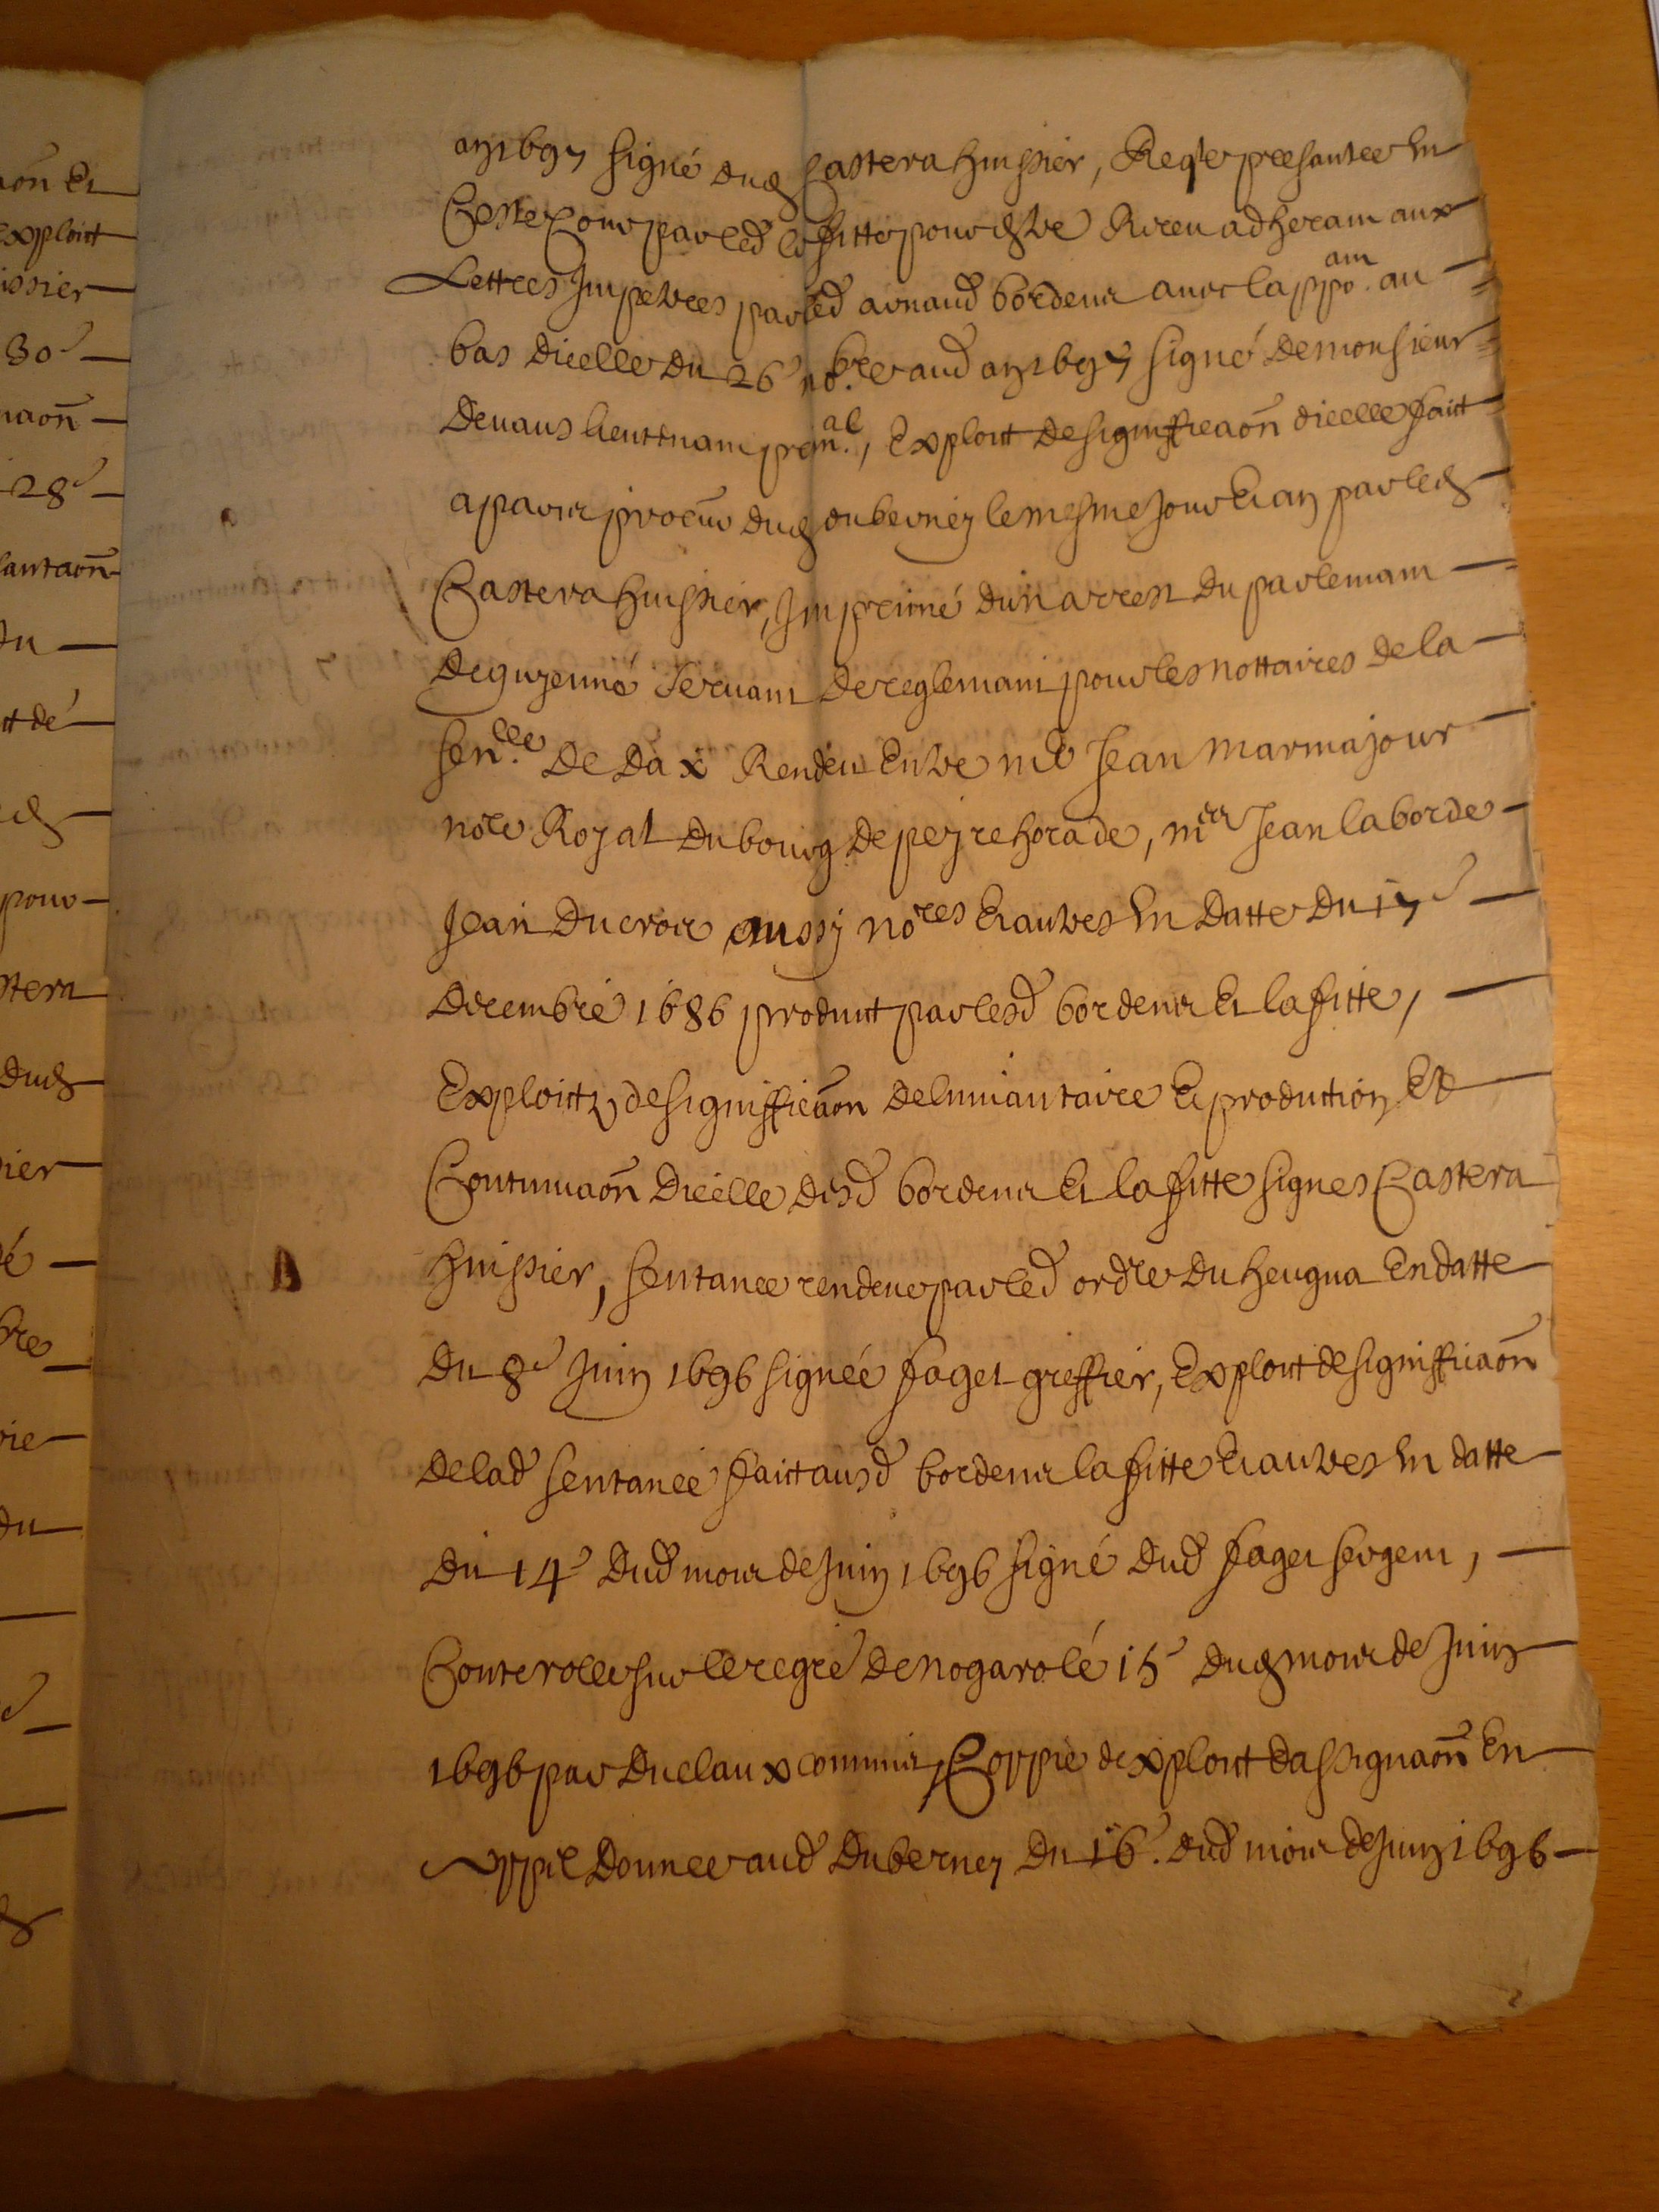 an 1697 signé dud Castera huissier, Reqte presantee en
Ceste Cour par led lafitte pour estre Receu adherant aux
Lettres Impetrees par led arnaud bordenа avec lappo.ant au
bas dicelle du 26e no.bre aud an 1697 signé de monsieur
Devaus lieuttnant prin.al, Exploict de signifficaon dicelle faict
a procur dud duberney le mesme jour Et an par led
Castera huissier, Imprimé dun arrest du parlemant
de guyenne servant de reglemant pour les nottaires de la
sen.lee De Dax Rendeu Entre me Jean marmajour
nore Royal du bourg de peyrehorade, mes Jean laborde
Jean Ducroix aussy nores Et autres En datte du 17e
Decembre 1686 produict par lesd bordenа Et lafitte,
Exploictz de signifficaon de linvantaire Et production Et
Continuaon dicelle desd bordenа Et lafitte signes Castera
huissier, sentance rendeue par led ordre du heugua En datte
du 8e Juin 1696 signée faget greffier, Exploict de signifficaon
de lad sentance faict ausd bordenа lafitte Et autres En datte
du 14e dud mois de Juin 1696 signé dud faget sergent,
Conterolle sur le regre de nogaro le 15e dud mois de Juin
1696 par Duclaux commis, Coppie dexploict dassignaon En
appel Donnee aud Duberney du 16e. dud mois de Juin 1696
aon Et
exploict
issier
30e
naon
28e
santaon
du
ct de
ed
pour
stera
dud
ier
é
bre
rie
du